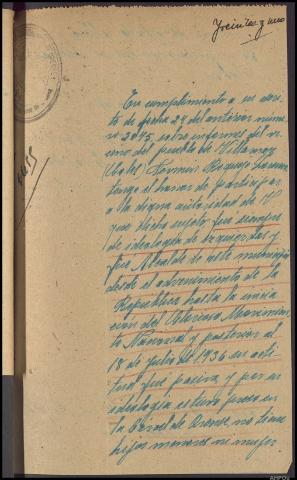 Treinta y uno
En cumplimiento a su escri-
to de fecha 29 del anterior núme-
ro 3045, sobre informes del ve-
cino del pueblo de
tengo el honor de participar
a la digna autoridad de V.
que dicho sujeto fue siempre
de ideología de izquierdas, y
fue Alcalde de este municipio
desde el advenimiento de la
República hasta la inicia
cion del Glorioso Movimien-
to Nacional y posterior al
18 de Julio de 1936 su acti-
tud fué pasiva, y por su
ideología estuvo preso en
la Prisión de Orense, no tiene
hijos menores ni mujer
AHPOu